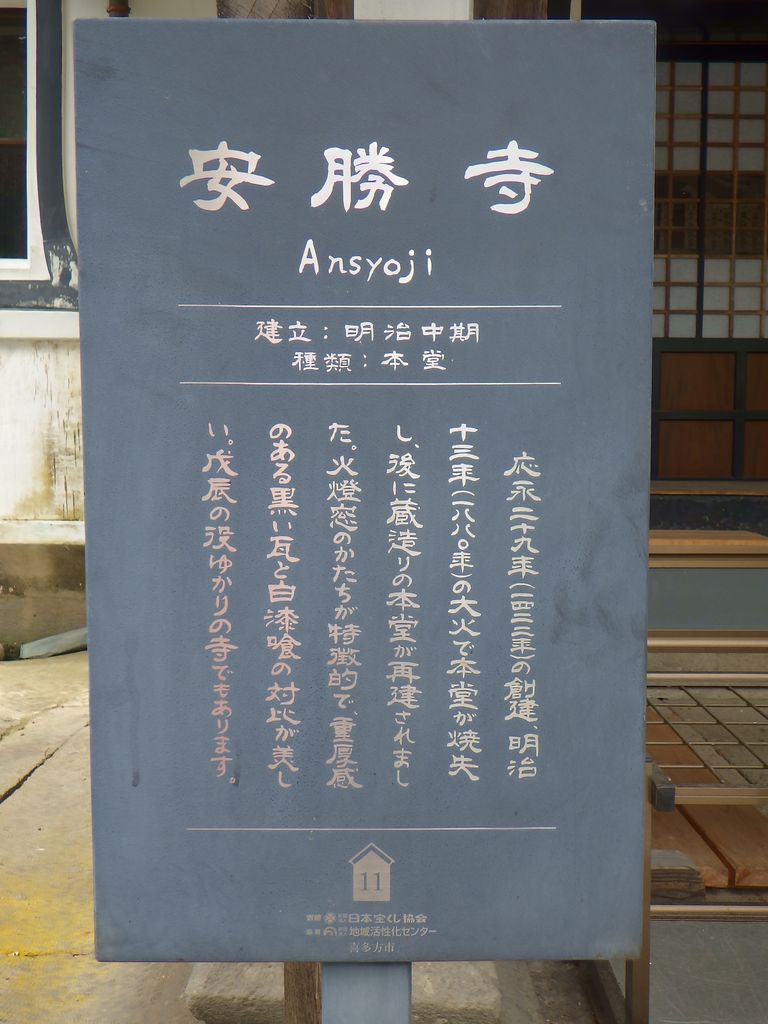 安勝寺
Ansyoji
建立：明治中期
種類：本堂
応永二十九年(一四二二年)の創建、明治
十三年(一八八〇年)の大火で本堂が焼失
し、後に蔵造りの本堂が再建されまし
た。火燈窓のかたちが特徴的で、重厚感
のある黒い瓦と白漆喰の対比が美し
い。戊辰の役ゆかりの寺でもあります。
11
日本宝くじ協会
地域活性化センター
喜多方市